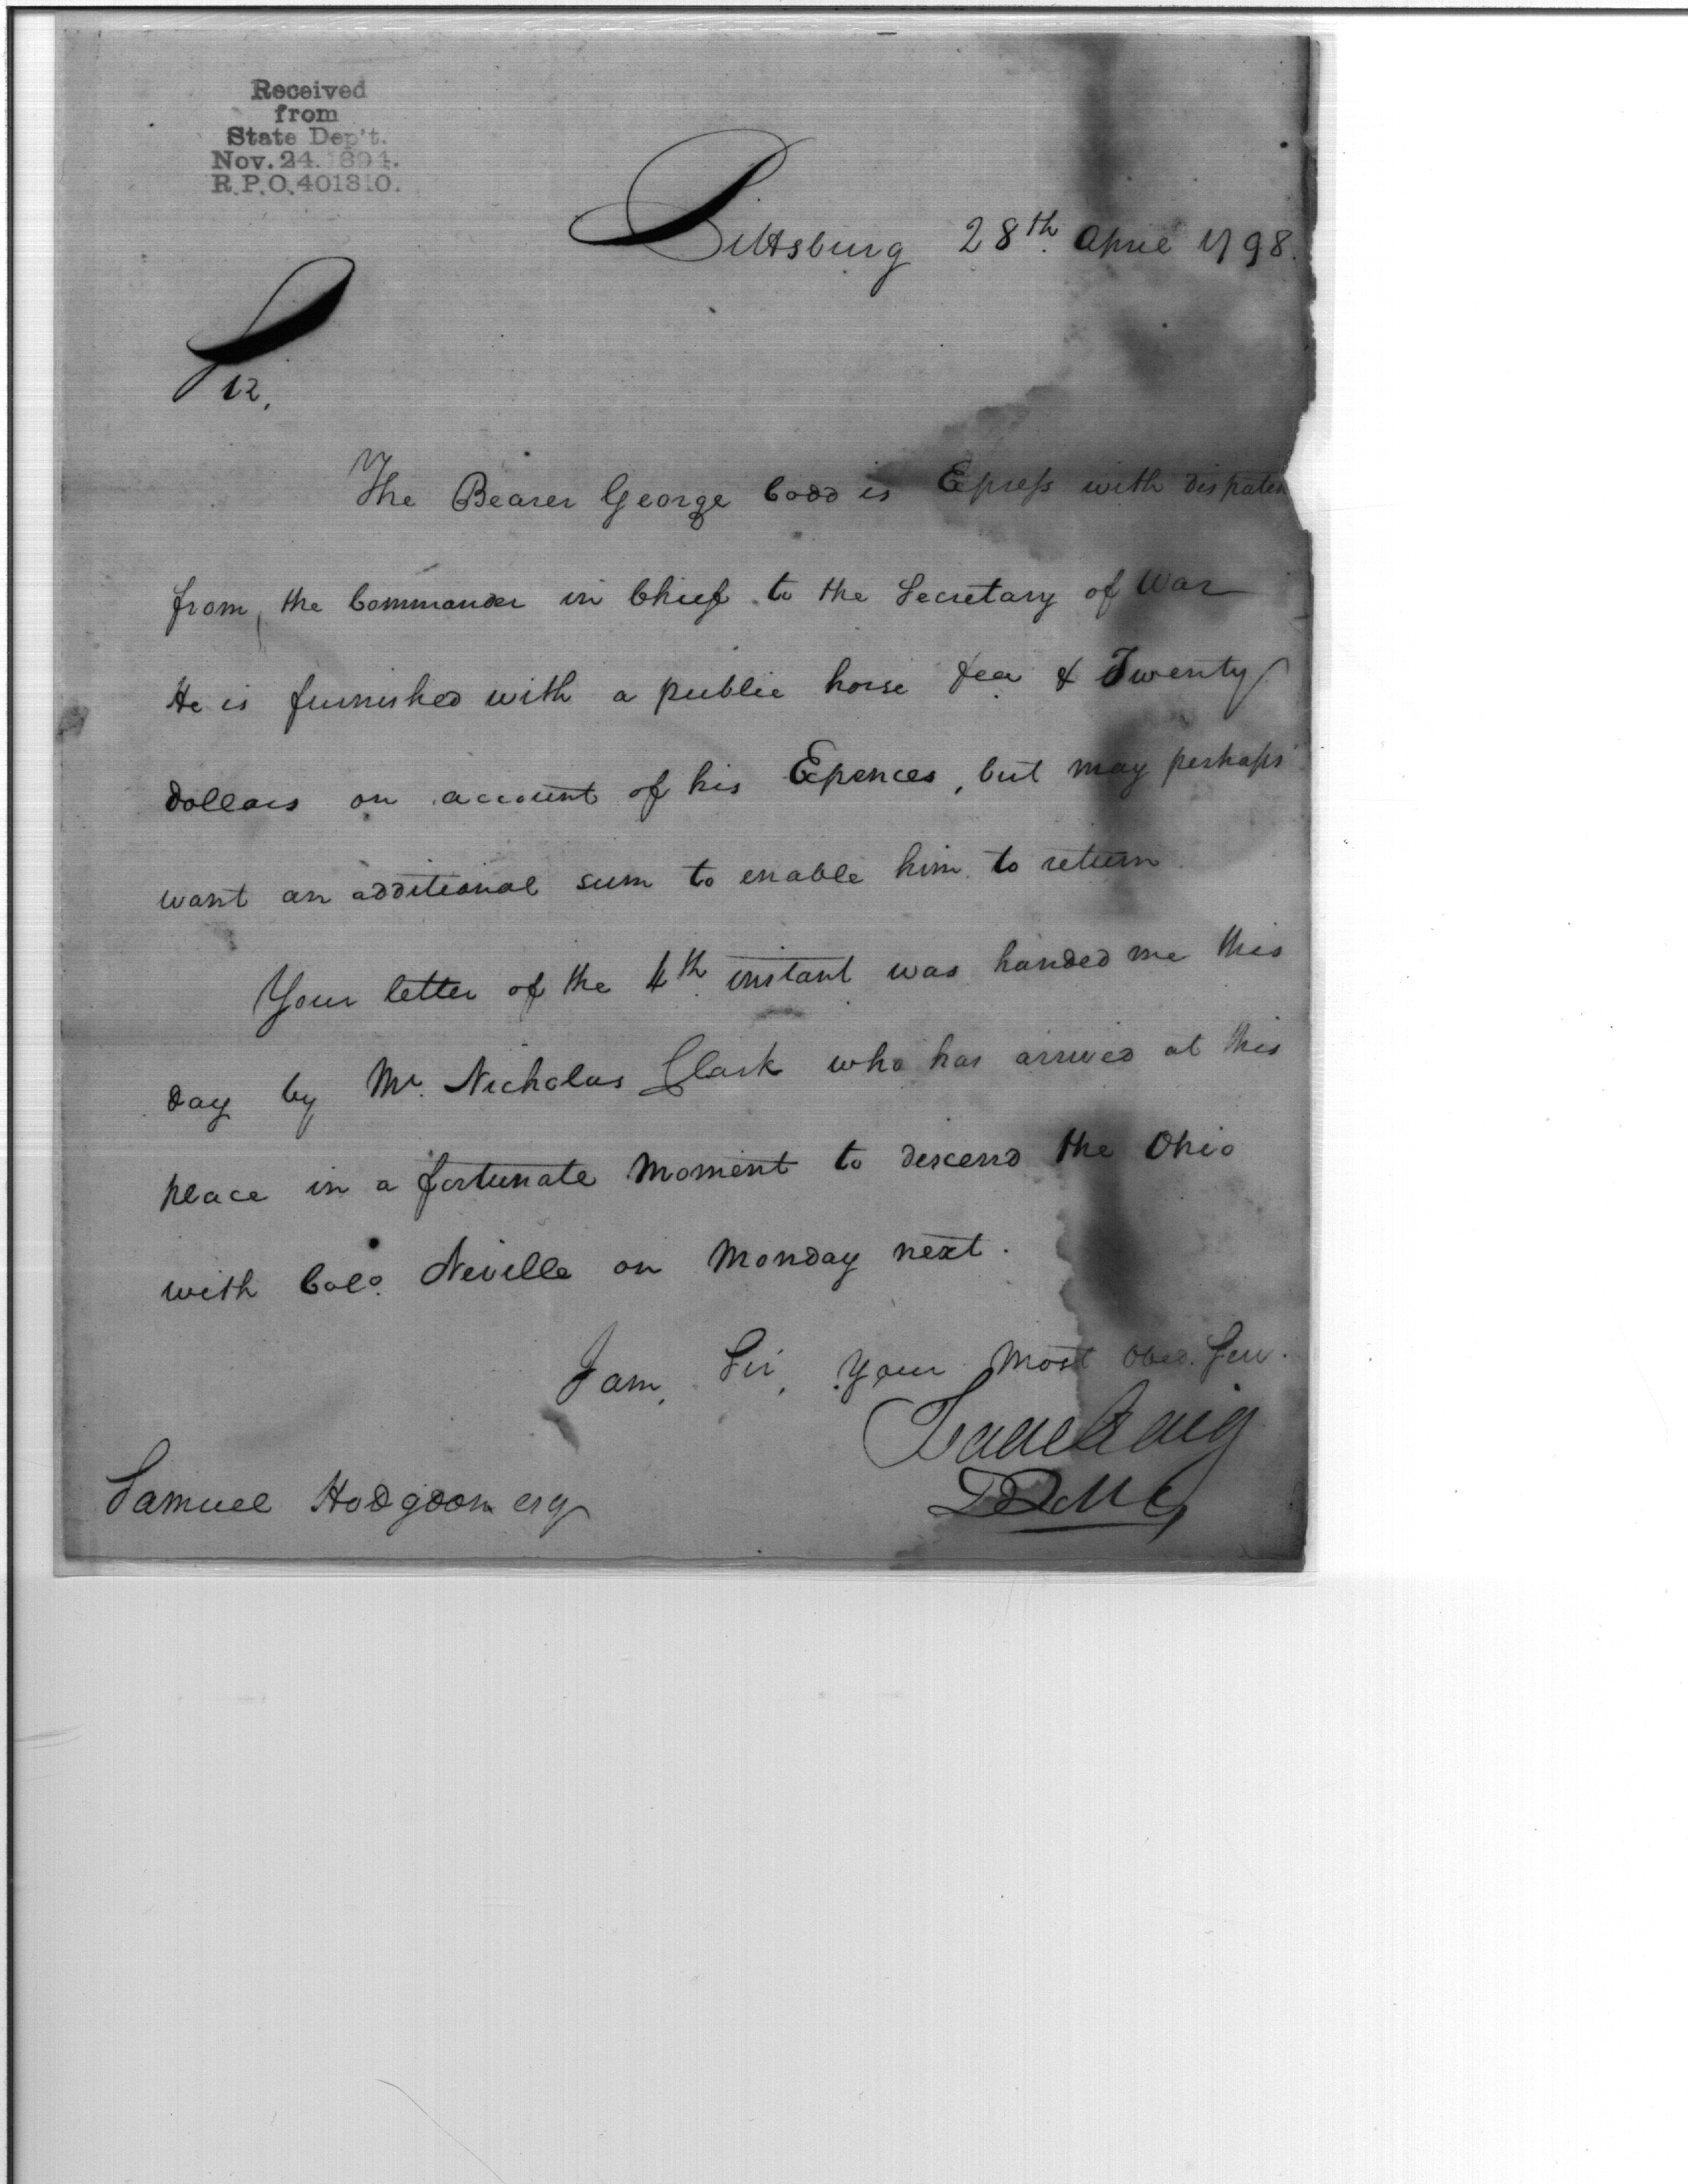 Received
from
State Dep't.
Nov. 24. 1894.
R.P.O. 401310.
Pittsburg 28th April 1798.
Sir,
The Bearer George Codd is Express with dispatch
from, the Commander in Chief to the Secretary of War
He is furnished with a public horse & Twenty
dollars on account of his Expences, but may perhaps
want an additional sum to enable him to return
Your letter of the 4th instant was handed me this
day by Mr. Nicholas Clark who has arrived at this
place in a fortunate Moment to descend the Ohio
with Colo. Neville on Monday next.
I am, Sir, Your Most Obed. Serv.
Isaac Craig
DQMG
Samuel Hodgdon esq